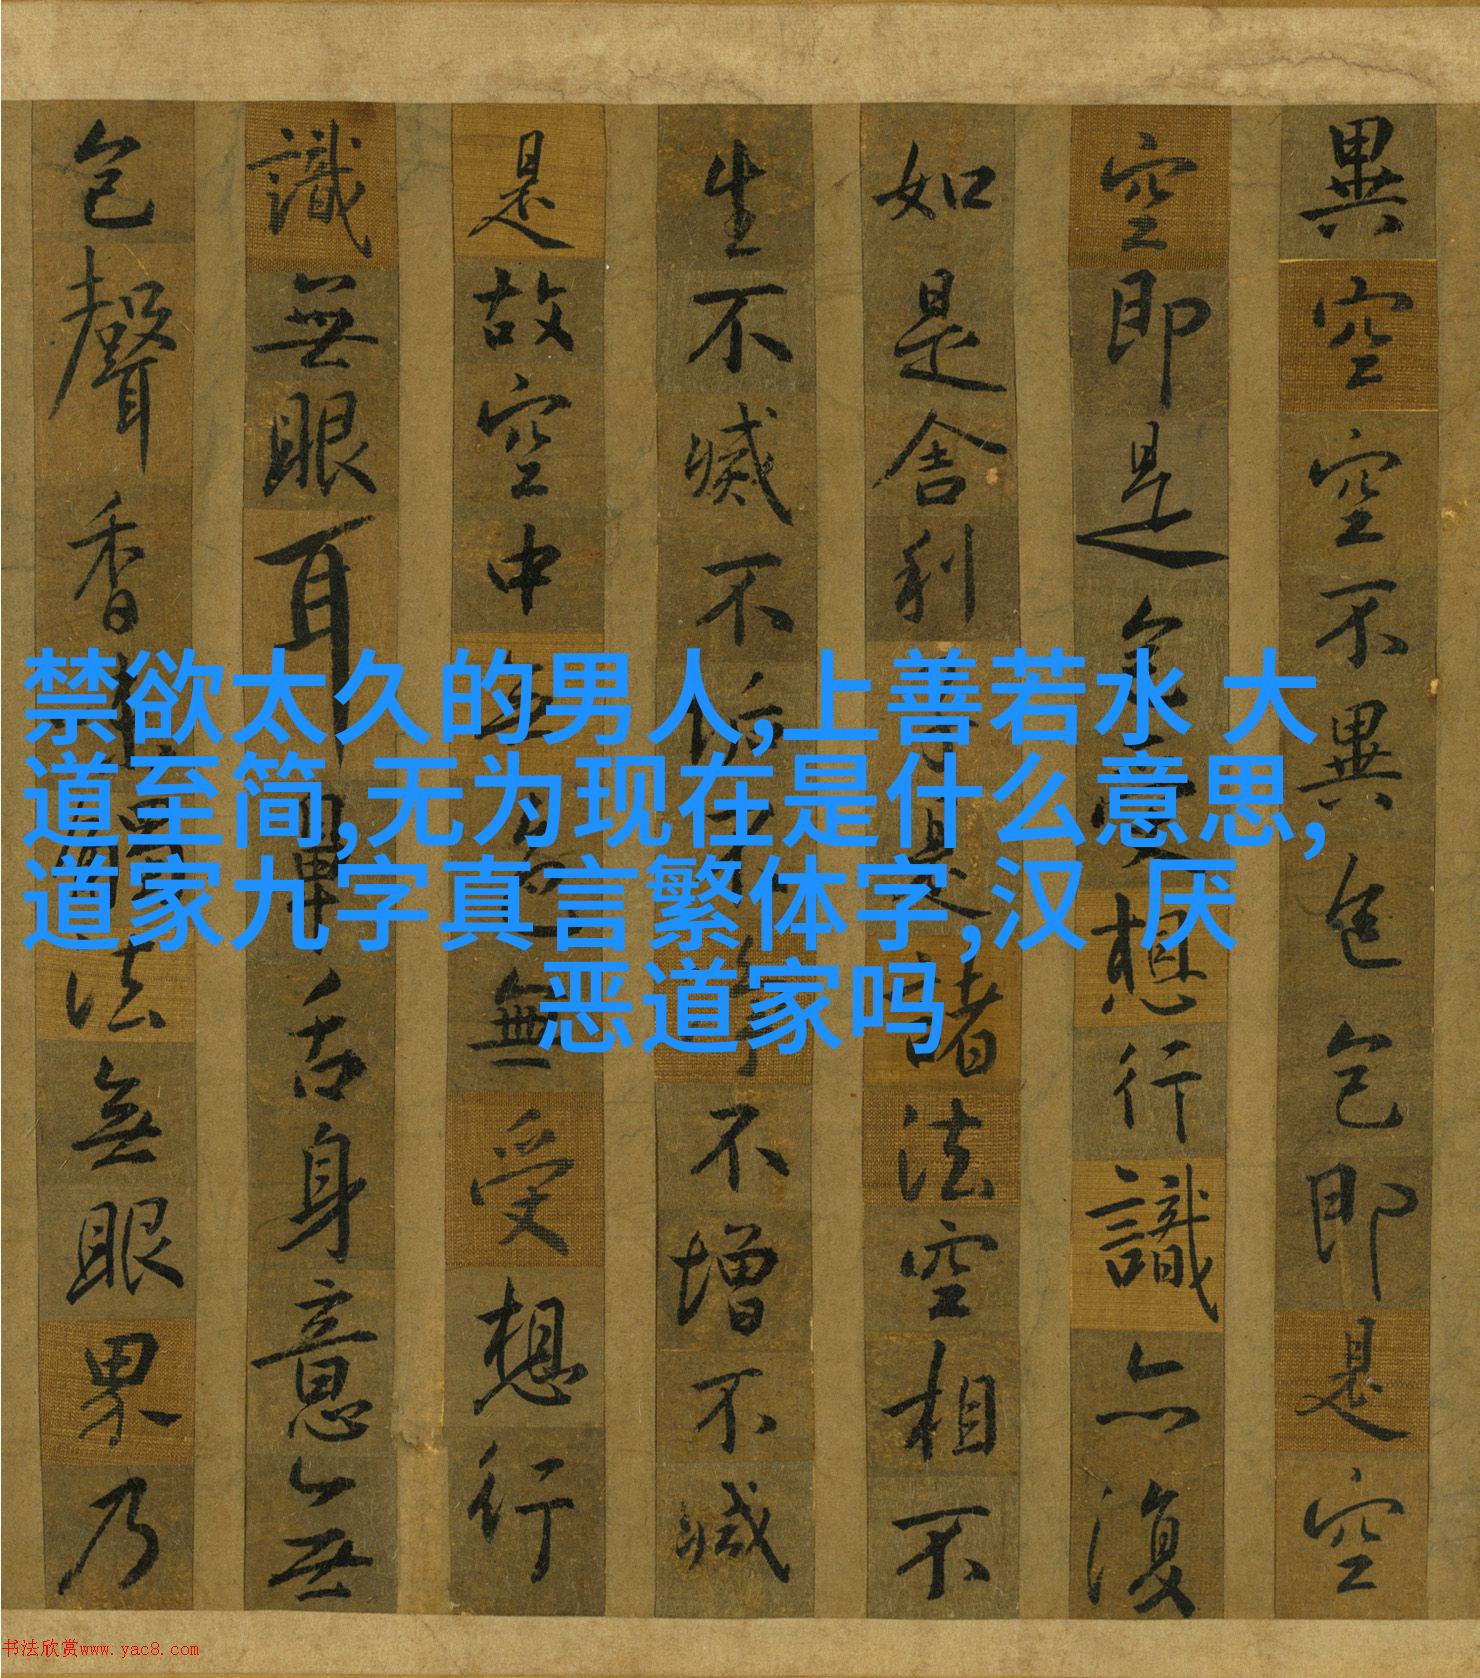 禁欲太久的男人,上善若水 大
道至简,无为现在是什么意思,
道家九字真言繁体字,汉 厌
恶道家吗
異空空不異色色即是空
空即是色受想行識亦復
如是舍利子是諸法空相不
生不滅不垢不淨不增不減
是故空中無色無受想行
識無眼耳鼻舌身意無
色聲香味觸法無眼界乃
书法欣赏www.yac8.com